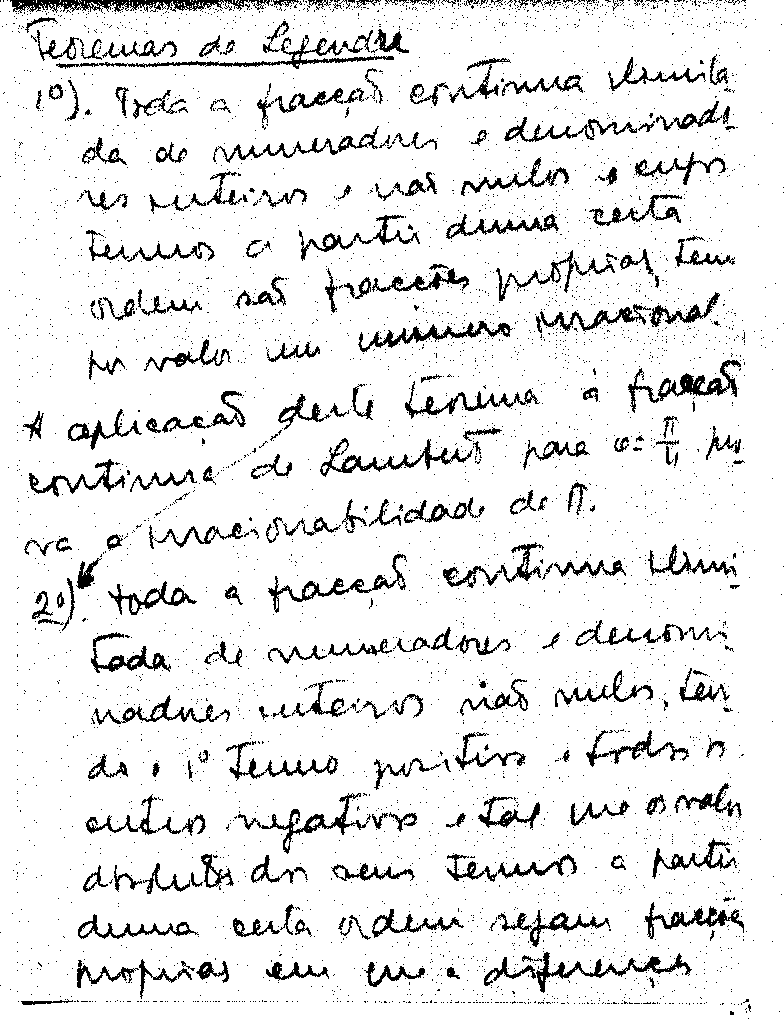 Teoremas de Legendre
1º). Toda a fracção continua ilimita-
da de numeradores e denominado-
res inteiros e não nulos e cujos
termos a partir duma certa
ordem são fracções próprias, tem
por valor um número irracional.
A aplicação deste teorema à fracção
continua de Lambert para pro-
va a irracionabilidade de π.
2º). Toda a fracção continua ilimi-
tada de numeradores e denomi-
nadores inteiros não nulos, ten-
do o 1º termo positivo e todos os
outros negativos e tal que os valores
absolutos dos seus termos a partir
duma certa ordem sejam fracções
proprias em que a diferença